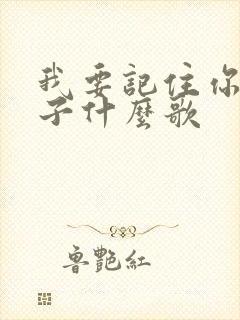 我要記住你
子什麼歌
魯艷紅